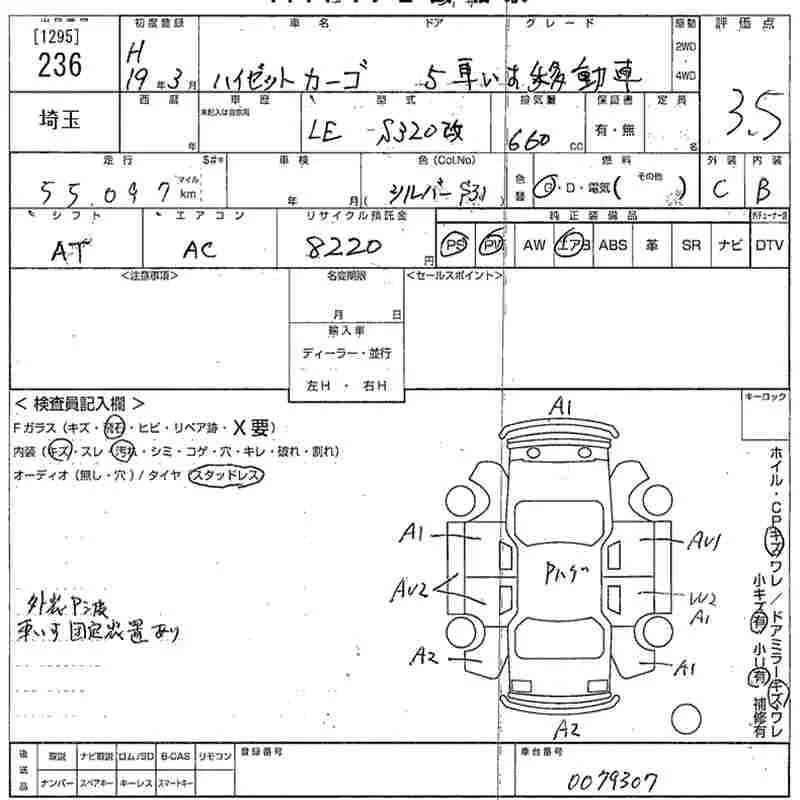 [1295]
236
初度登録 車名 ドア グレード 駆動 評価点
H 19年3月 ハイゼットカーゴ 5 車いす移動車 2WD・4WD
3.5
埼玉 西暦 年 車歴 未記入は自家用 型式 LE S320改 排気量 660cc 保証書 有・無 定員 名
走行 55,097 マイル km S#* 車検 年 月 色(Col.No) シルバーS31 色替 燃料 G・D・電気( その他 ) 外装 C 内装 B
シフト AT エアコン AC リサイクル預託金 8220円 純正装備品
PS PW AW エアB ABS 革 SR ナビ DTV
<注意事項> 名変期限 <セールスポイント>
月 日
輸入車
ディーラー・並行
左H ・ 右H
< 検査員記入欄 > キーロック
Fガラス(キズ・飛石・ヒビ・リペア跡・X要)
内装(キズ・スレ・汚れ・シミ・コゲ・穴・キレ・破れ・割れ)
オーディオ(無し・穴)/タイヤ スタッドレス
A1
A1 AU1
Pハゲ
AU2 W2
A1
A2 A1
A2
外装P済
車いす固定装置あり
ホイル・CPキズワレ/ドアミラーキズワレ
小キズ有 小U有 補修有
後送品 取説 ナビ取説 ロム/SD B-CAS リモコン 登録番号 車台番号
ナンバー スペアキー キーレス スマートキー 0079307